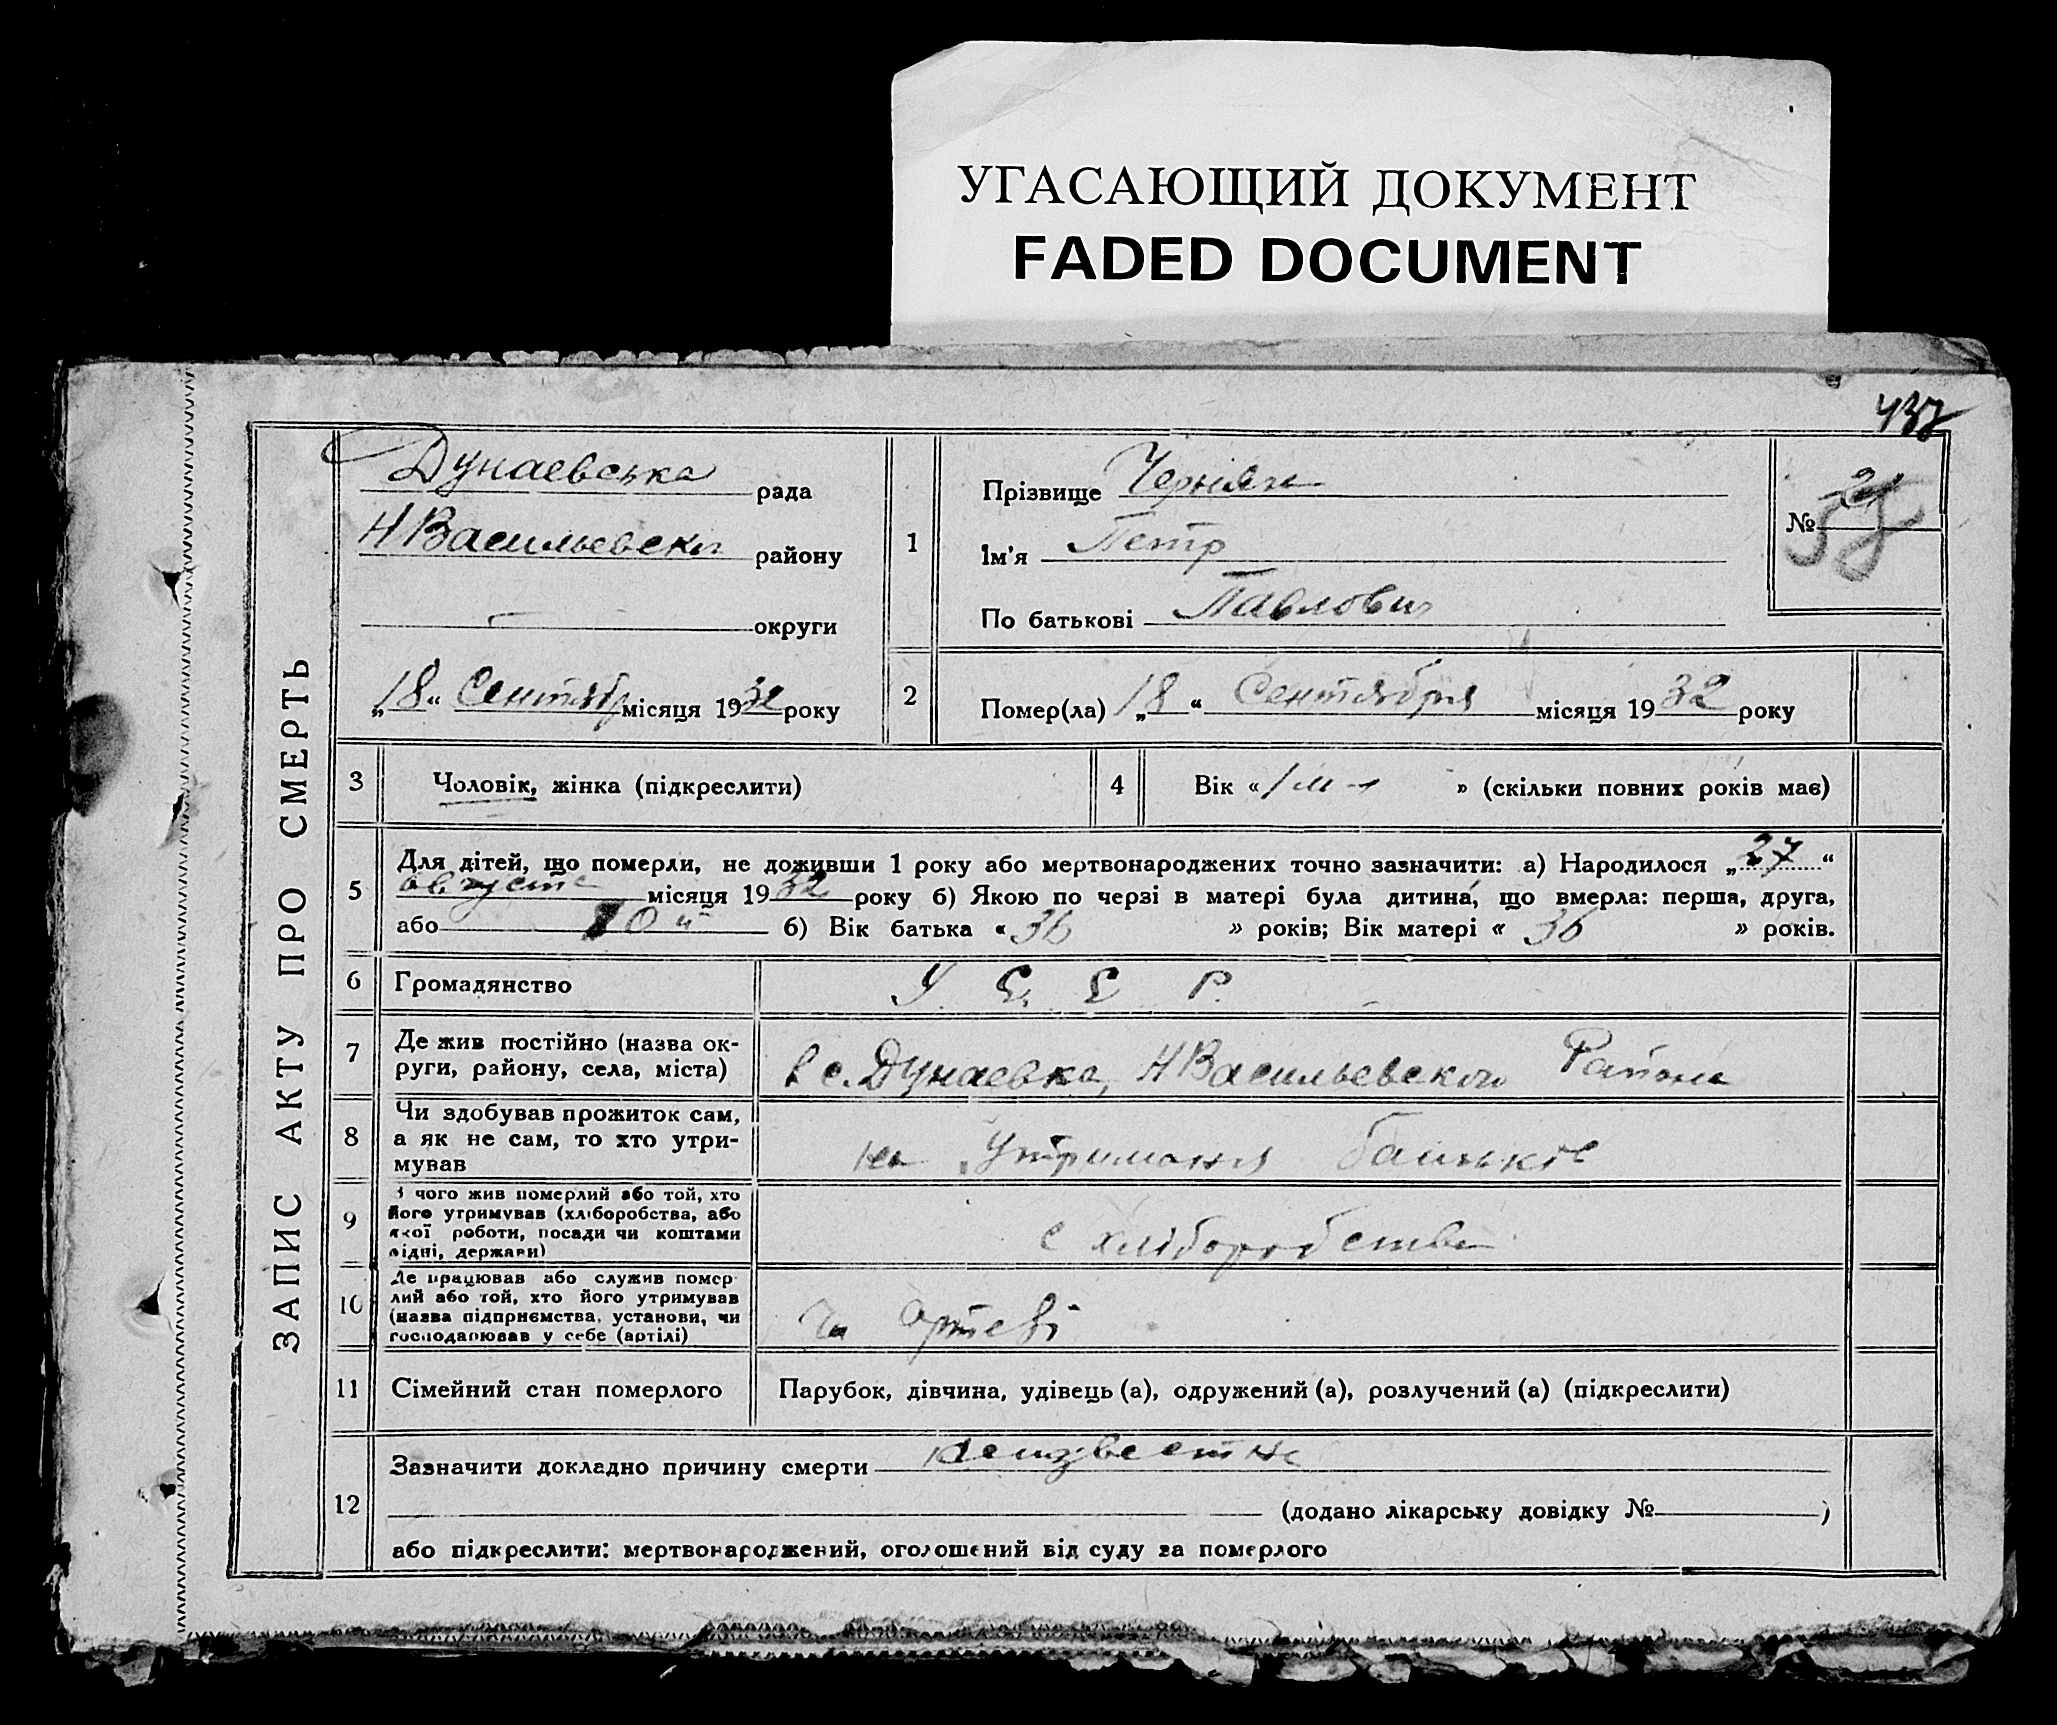 УГАСАЮЩИЙ ДОКУМЕНТ
FADED DOCUMENT
ЗАПИС АКТУ ПРО СМЕРТЬ
Дунаевська рада
НВасильевског району
округи
„18“ Сентябр місяця 1932 року
1
Прізвище
Ім'я Петр
По батькові Павлович
№ 21
2
Помер(ла) „18“ Сентября місяця 1932 року
3
Чоловік, жінка (підкреслити)
4
Вік «1 м-ц » (скільки повних років має)
5
Для дітей, що померли, не доживши 1 року або мертвонароджених точно зазначити: а) Народилося „27“
августа місяця 1932 року б) Якою по черзі в матері була дитина, що вмерла: перша, друга,
або 10й б) Вік батька «36 » років; Вік матері « 36 » років.
6
Громадянство
У. С. С. Р.
7
Де жив постійно (назва ок-
руги, району, села, міста)
в с. Дунаевка, НВасильевского Района
8
Чи здобував прожиток сам,
а як не сам, то хто утри-
мував
на утриманя батьків
9
З чого жив померлий або той, хто
його утримував (хліборобства, або
якої роботи, посади чи коштами
рідні, держави)
с хліборобства
10
Де працював або служив помер-
лий або той, хто його утримував
(назва підприємства, установи, чи
господарював у себе (артілі)
артеві
11
Сімейний стан померлого
Парубок, дівчина, удівець (а), одружений (а), розлучений (а) (підкреслити)
12
Зазначити докладно причину смерти неизвестно
(додано лікарську довідку № )
або підкреслити: мертвонароджений, оголошений від суду за померлого